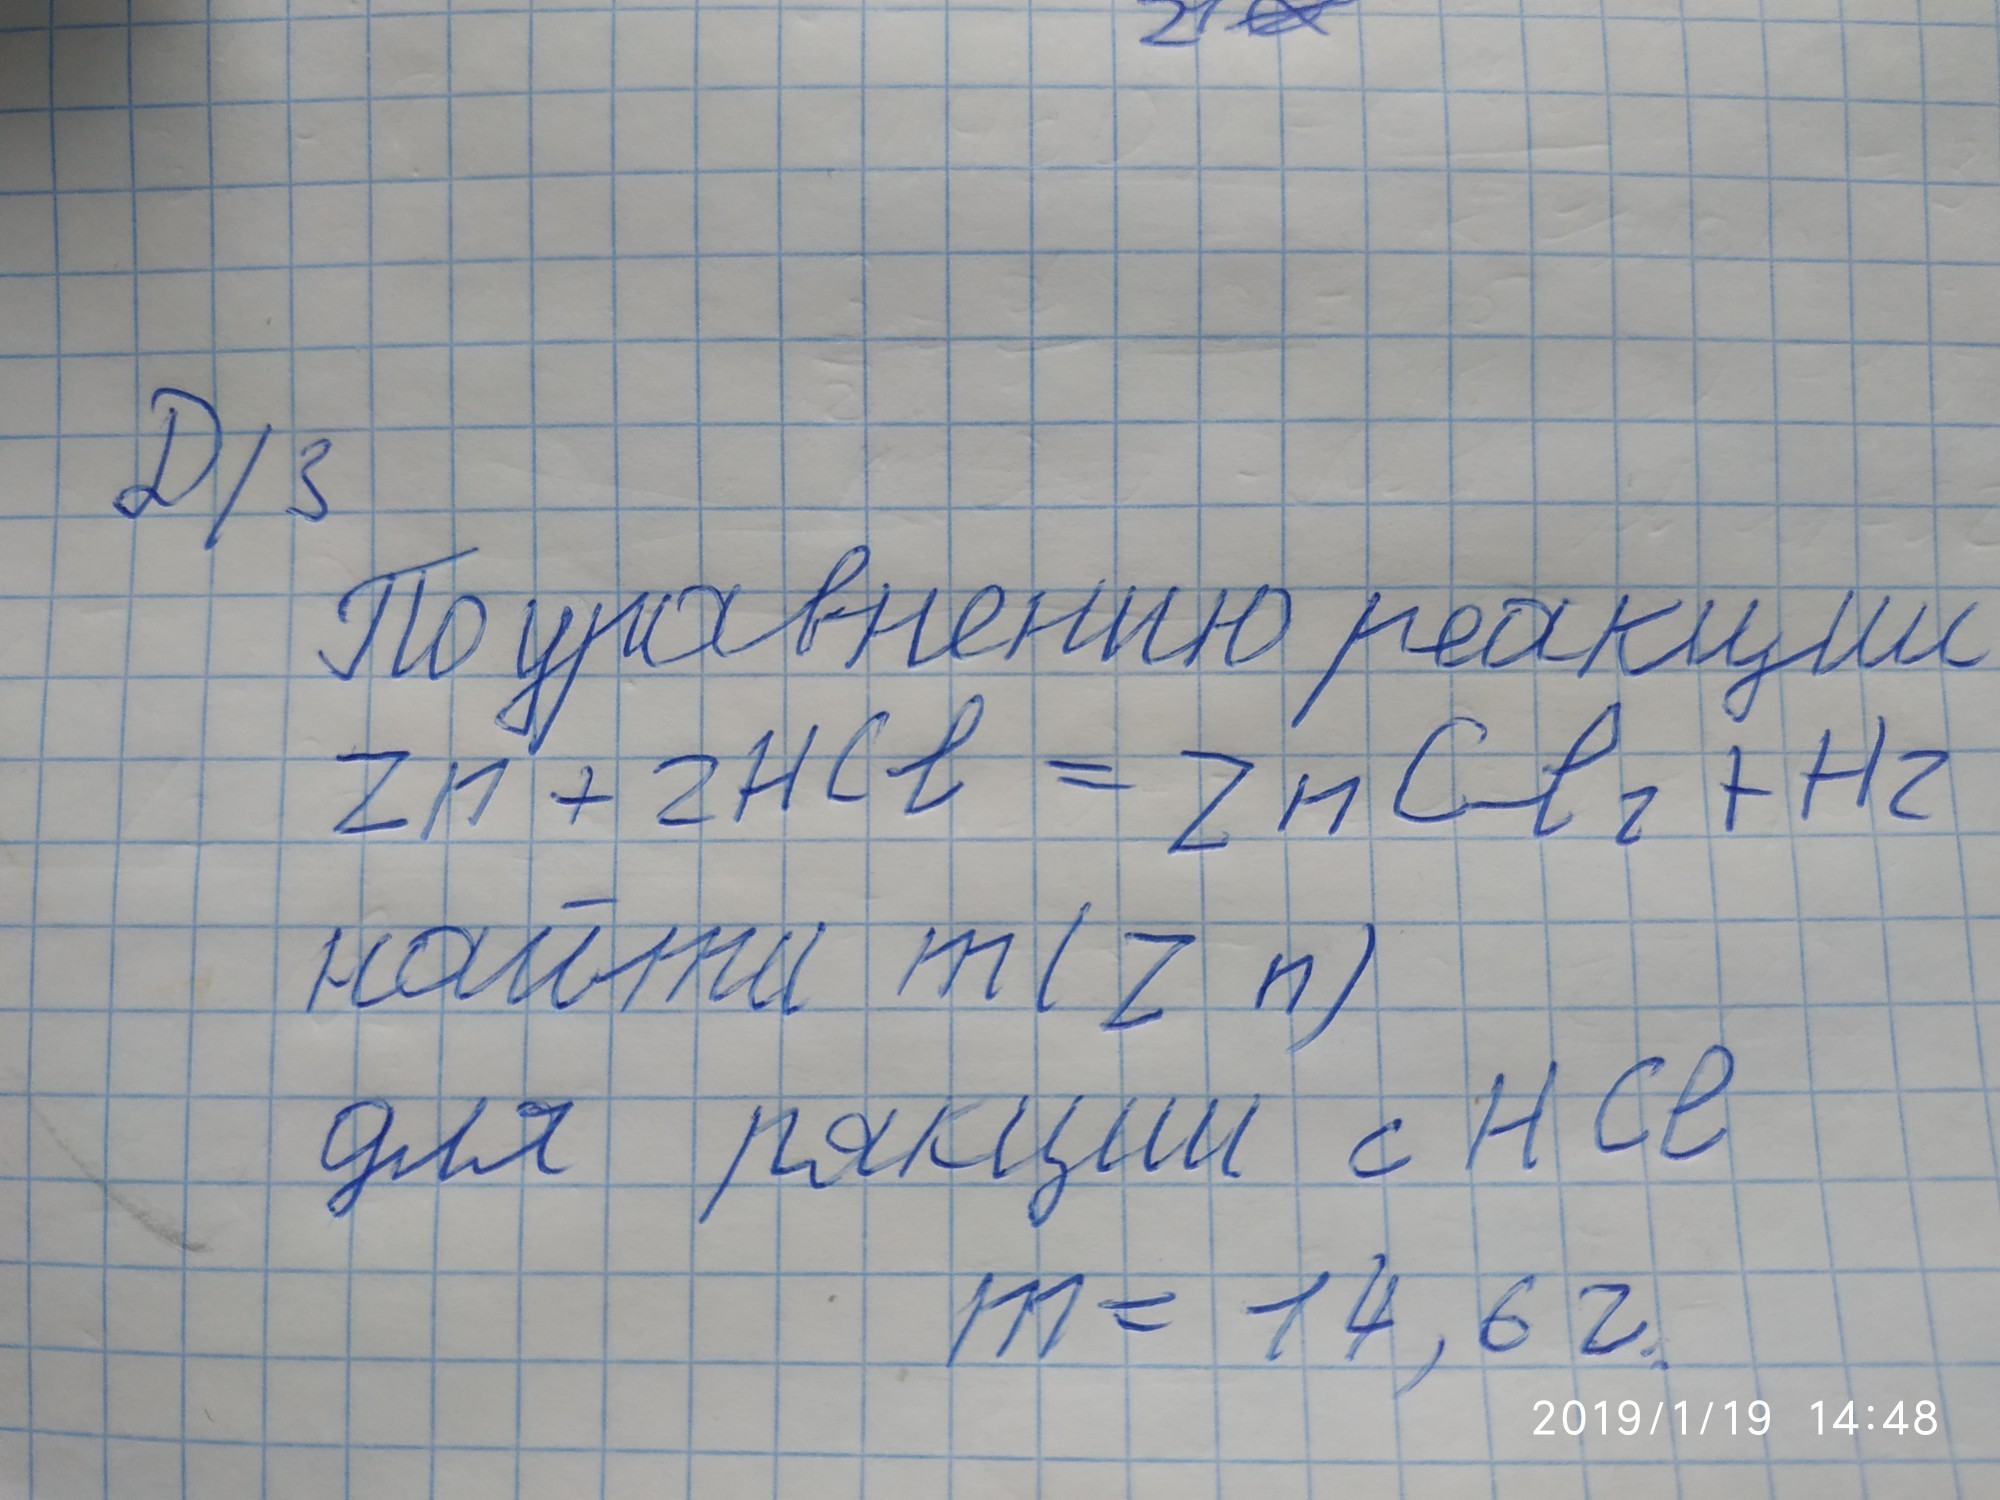 Д/з
По уравнению реакции
Zn + 2HCl = ZnCl₂ + H2
найти m(Zn)
для рякции с HCl
m = 14,6 г.
2019/1/19 14:48